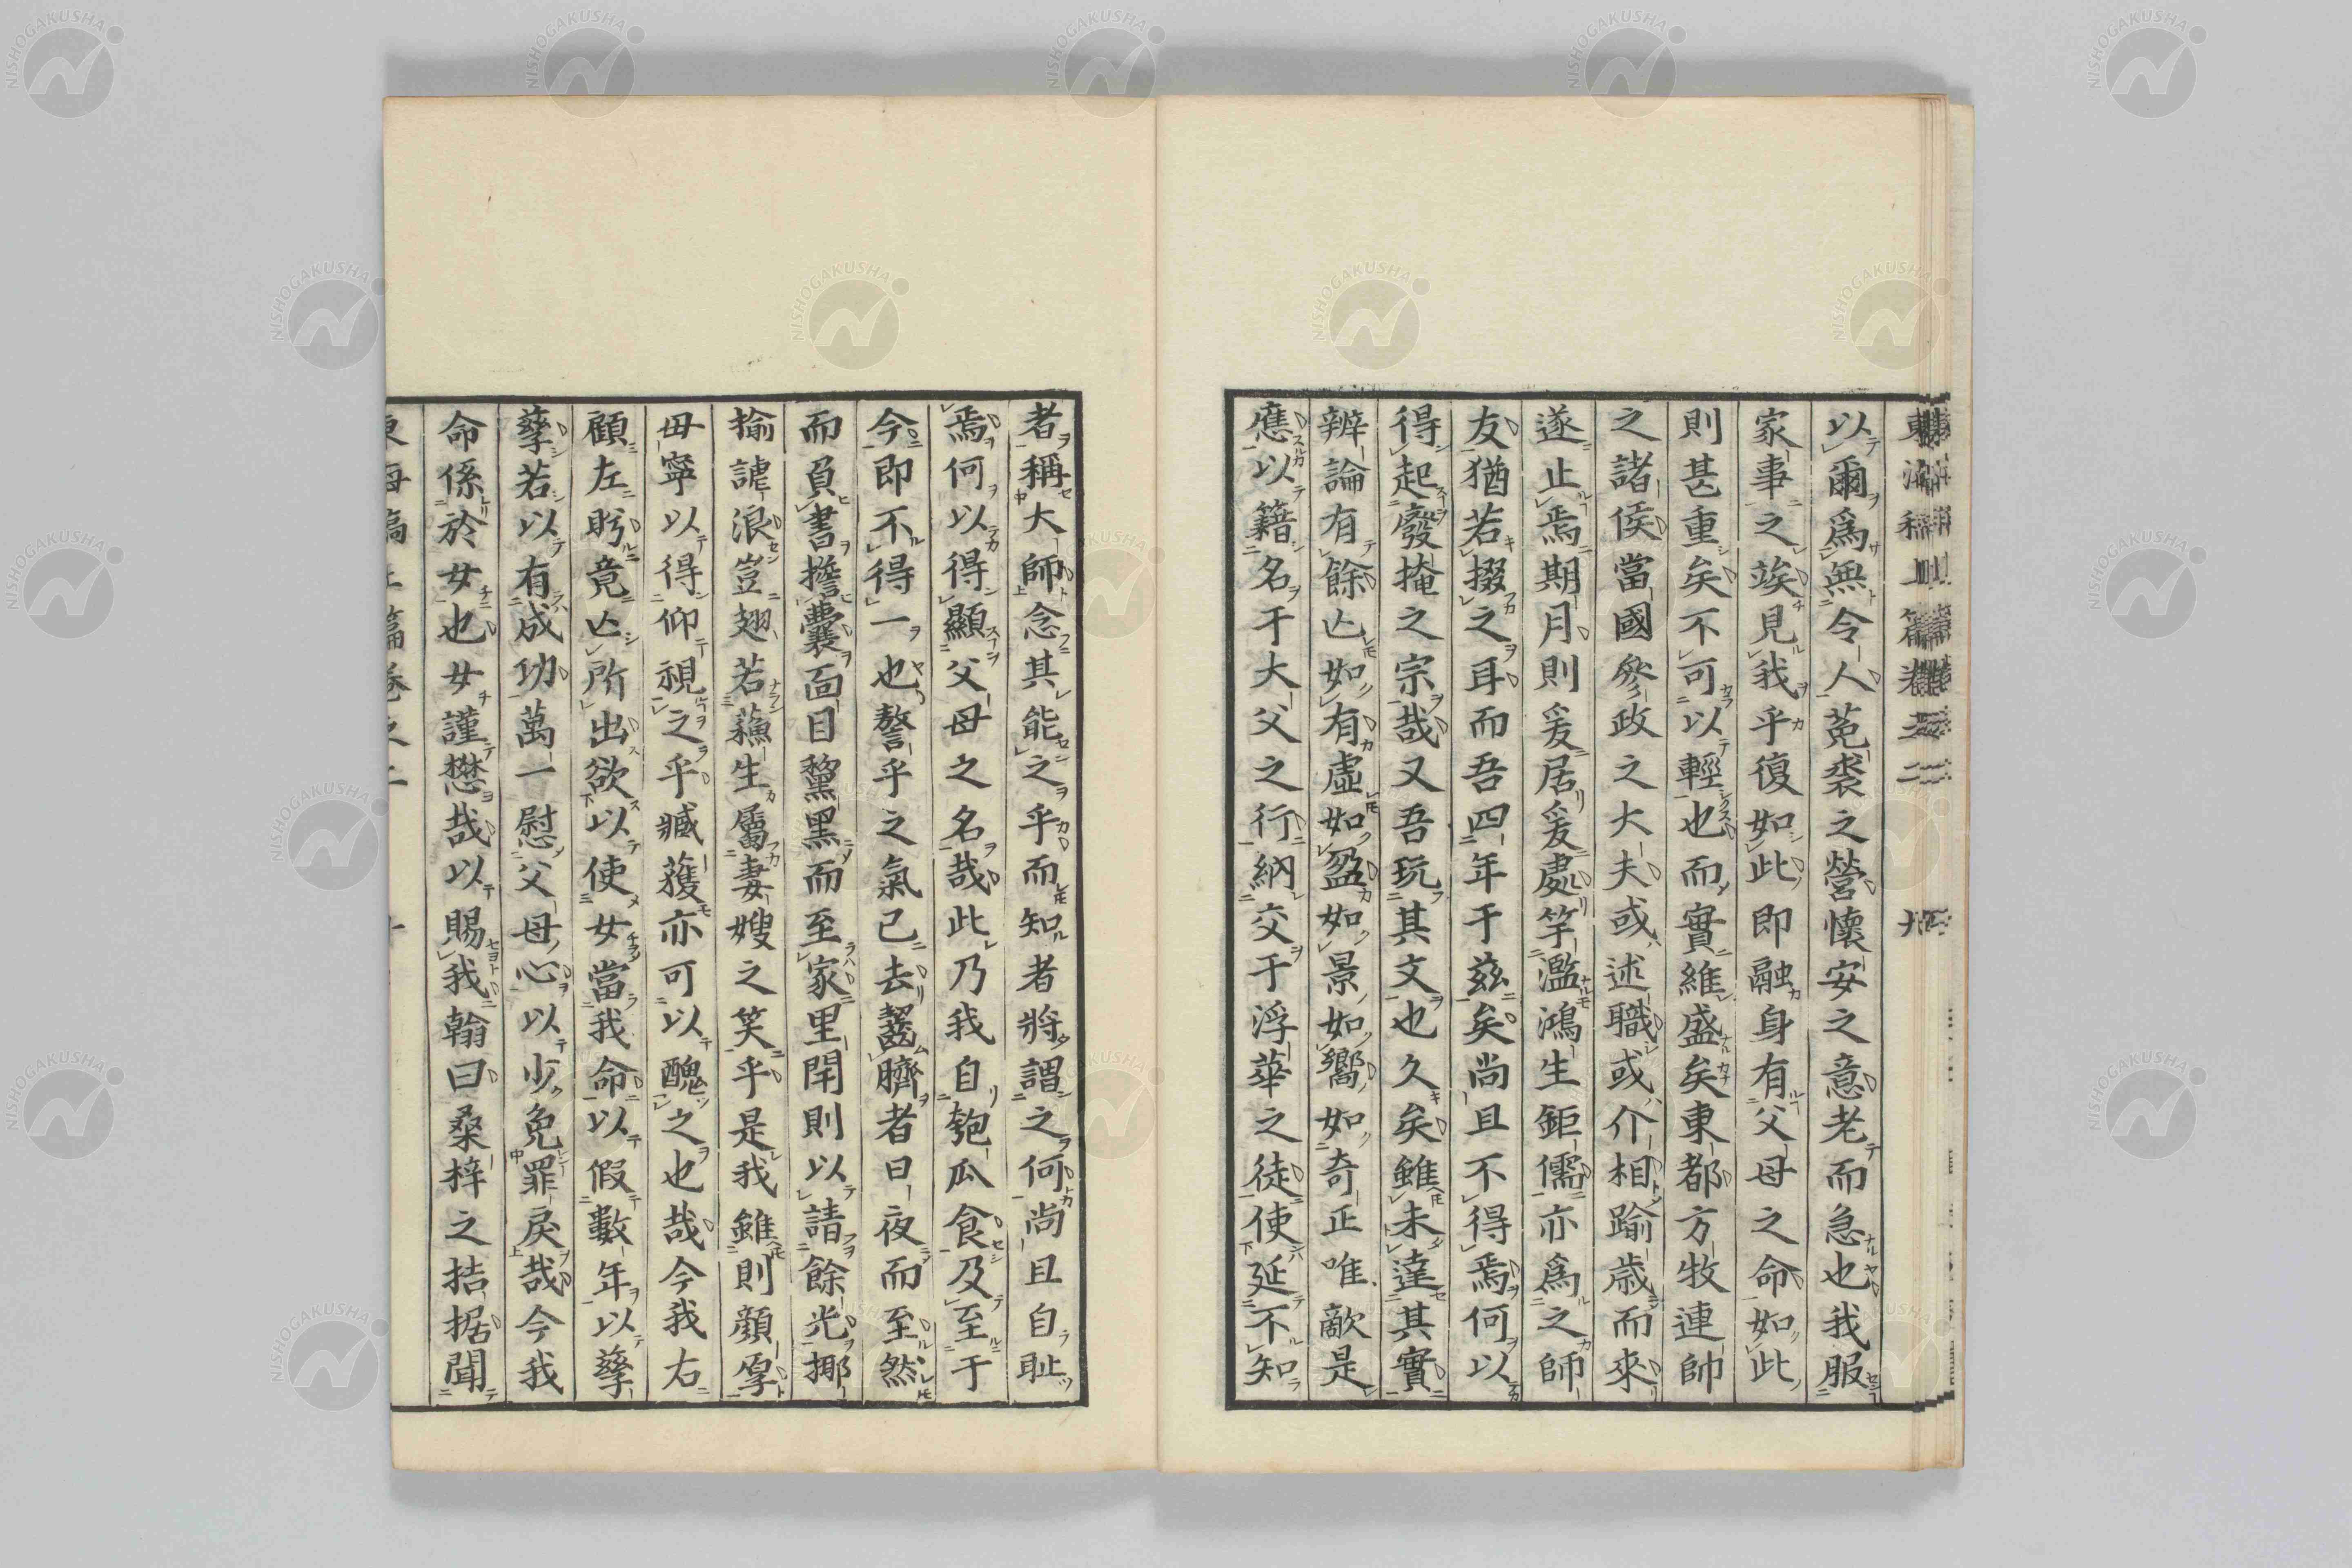 以爾爲無令人菟裘之營懷安之意老而急也我服
家事之埃見我乎復如此即融身有父母之命如此
則甚重矣不可以輕也而實維盛矣東都方牧連帥
之諸侯當國參政之大夫或述職或介相踰歲而來
遂止焉期月則爰居爰處竽濫鴻生鉅儒亦爲之師
友猶若掇之耳而吾四年于茲矣尚且不得焉何以
得起廢掩之宗哉又吾玩其文也久矣雖未達其實
辨論有餘亾如有虛如盈如景如嚮如奇正唯敵是
應以籍名于大父之行納交于浮華之徒使延不知
者稱大師念其能之乎而知者將謂之何尚且自恥
焉何以得顯父母之名哉此乃我自匏瓜食及至于
今即不得一也謷乎之氣已去齧臍者日夜而至然
而負書擔囊面目黧黑而至家里閈則以請餘光揶
揄謔浪豈翅若蘓生屬妻嫂之笑乎是我雖則顔厚
毋寧以得仰視之乎臧獲亦可以醜之也哉今我右
顧左盻竟亾所出欲以使女當我命以假數年以孳
孳若以有成功萬一慰父母心以少免罪戾哉今我
命係於女也女謹懋哉以賜我翰曰桑梓之拮据聞